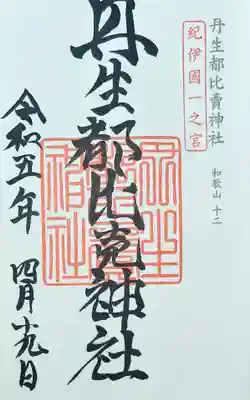 丹生都比賣神社
和歌山 十二
紀伊國一之宮
丹生都比売神社
令和五年
四月十九日